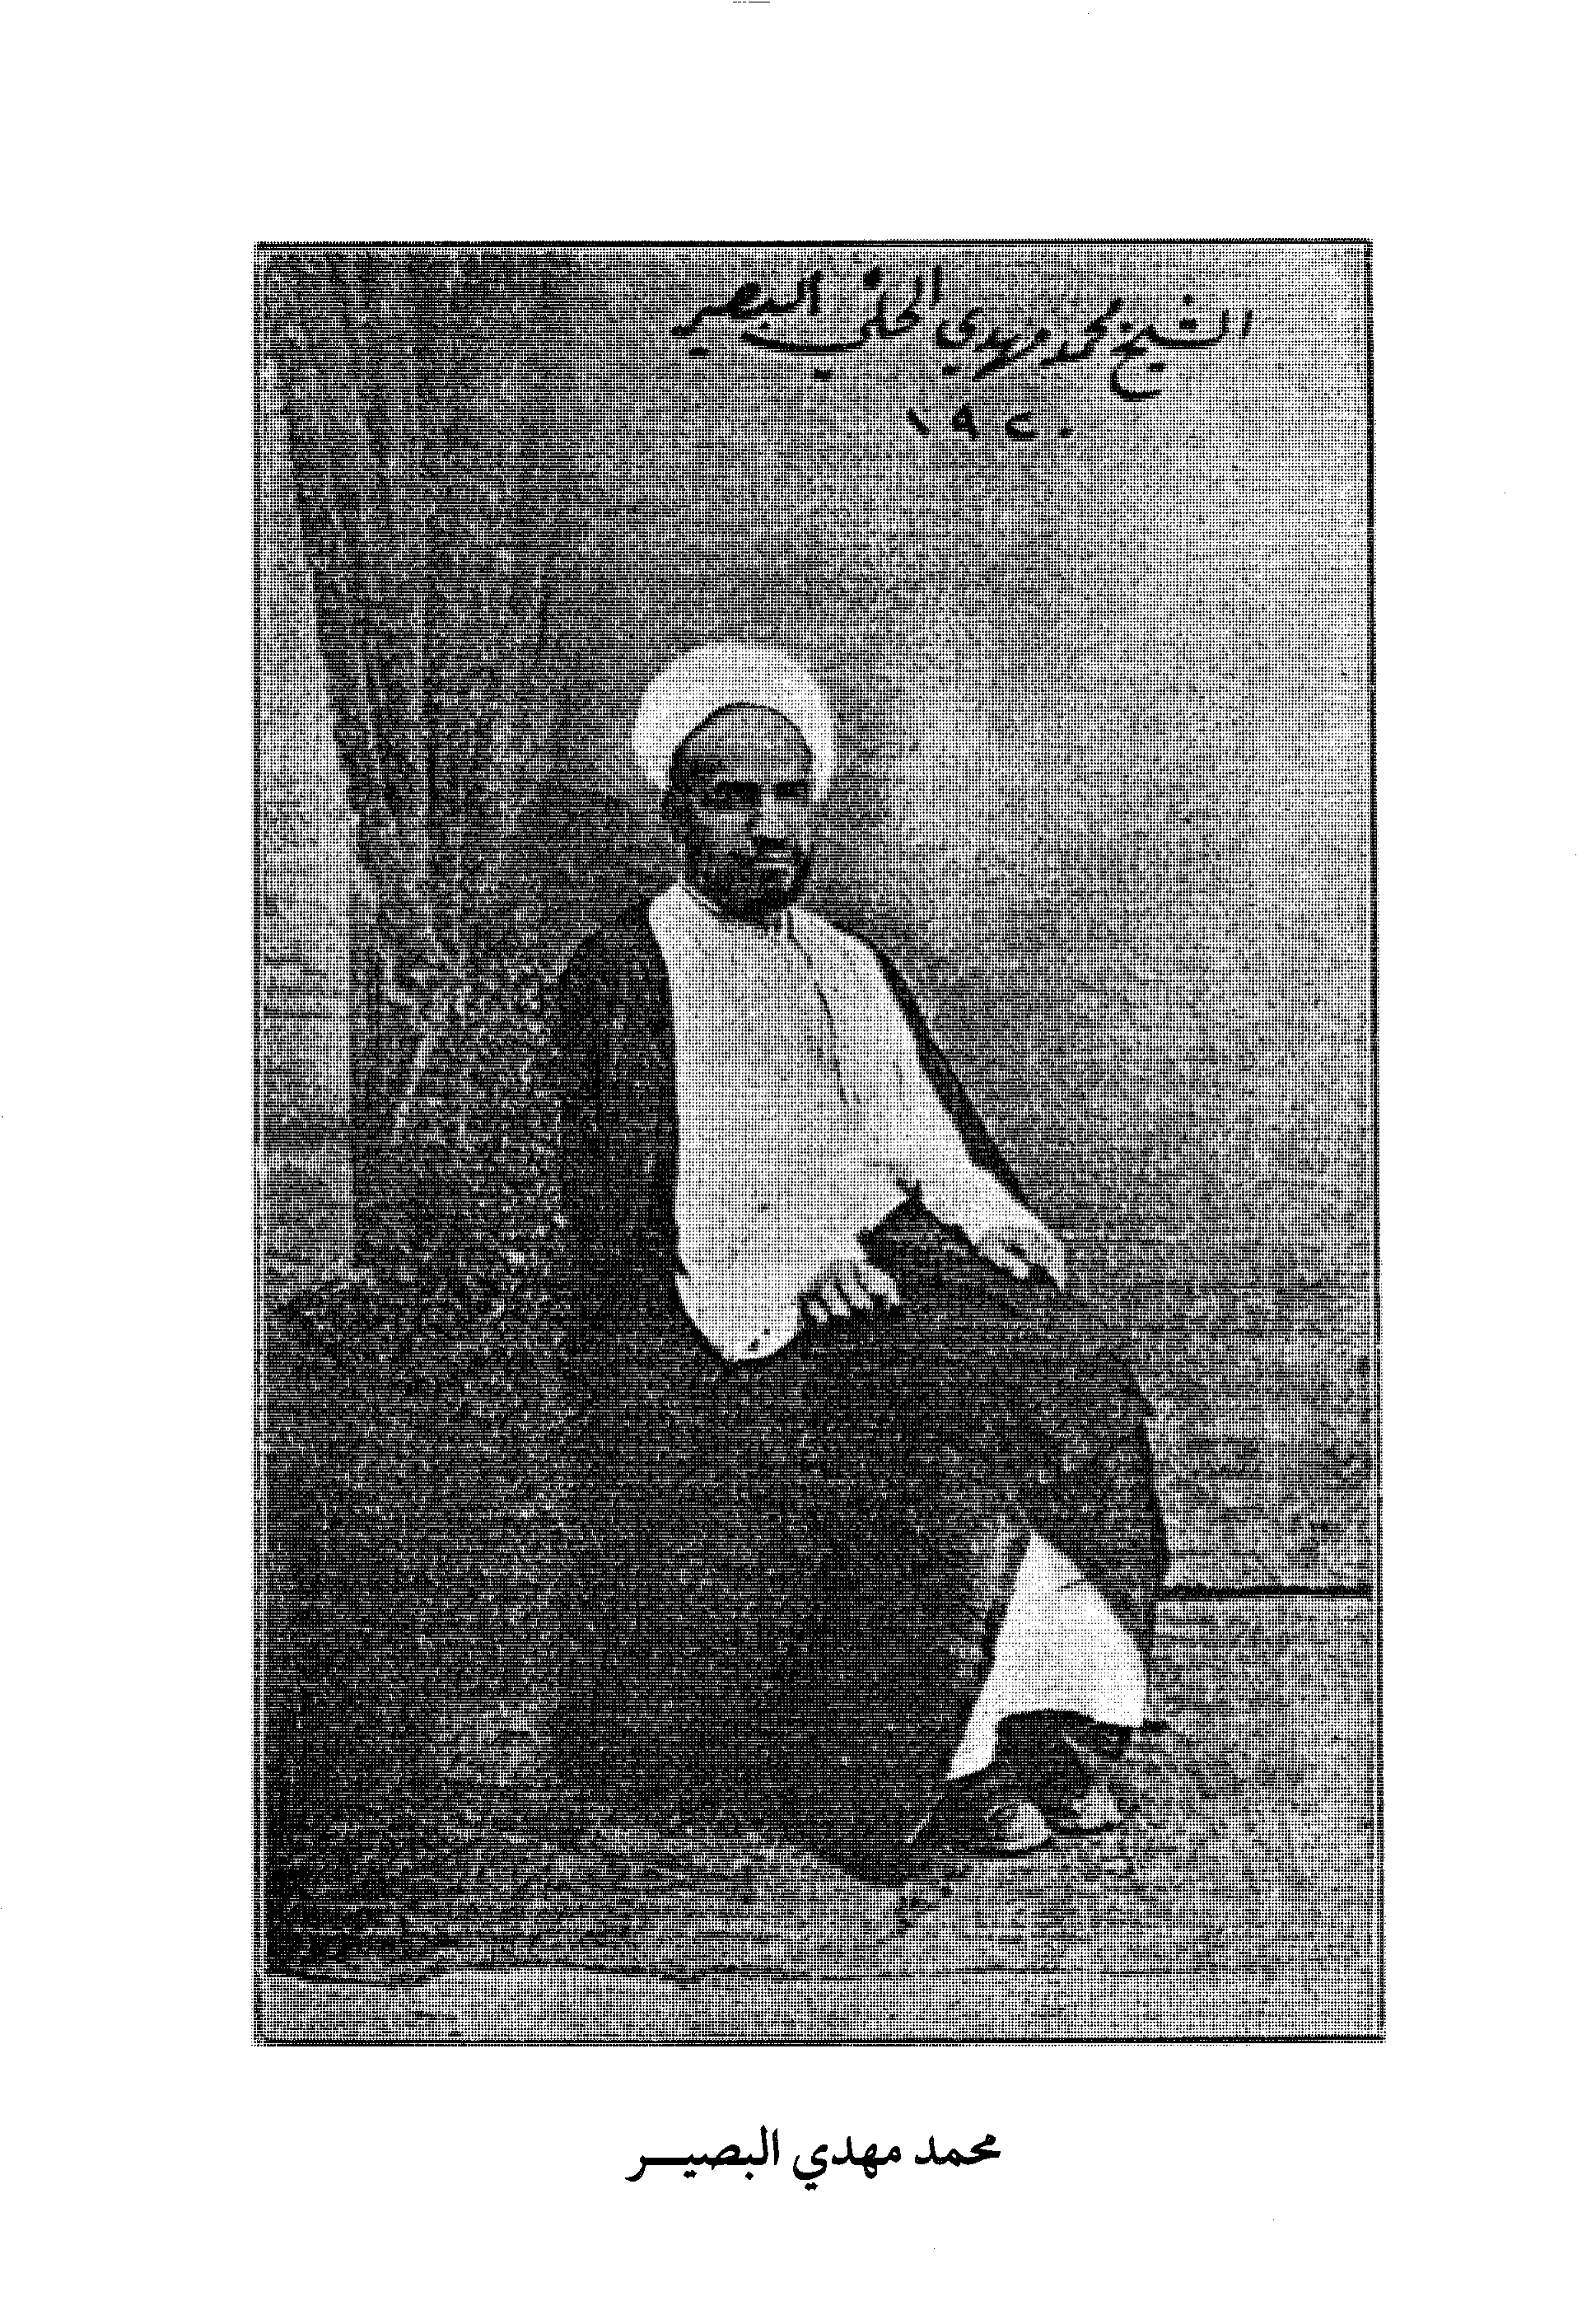 الشيخ محمد مهدي الحلي البصير
١٩٢٠
محمد مهدي البصير